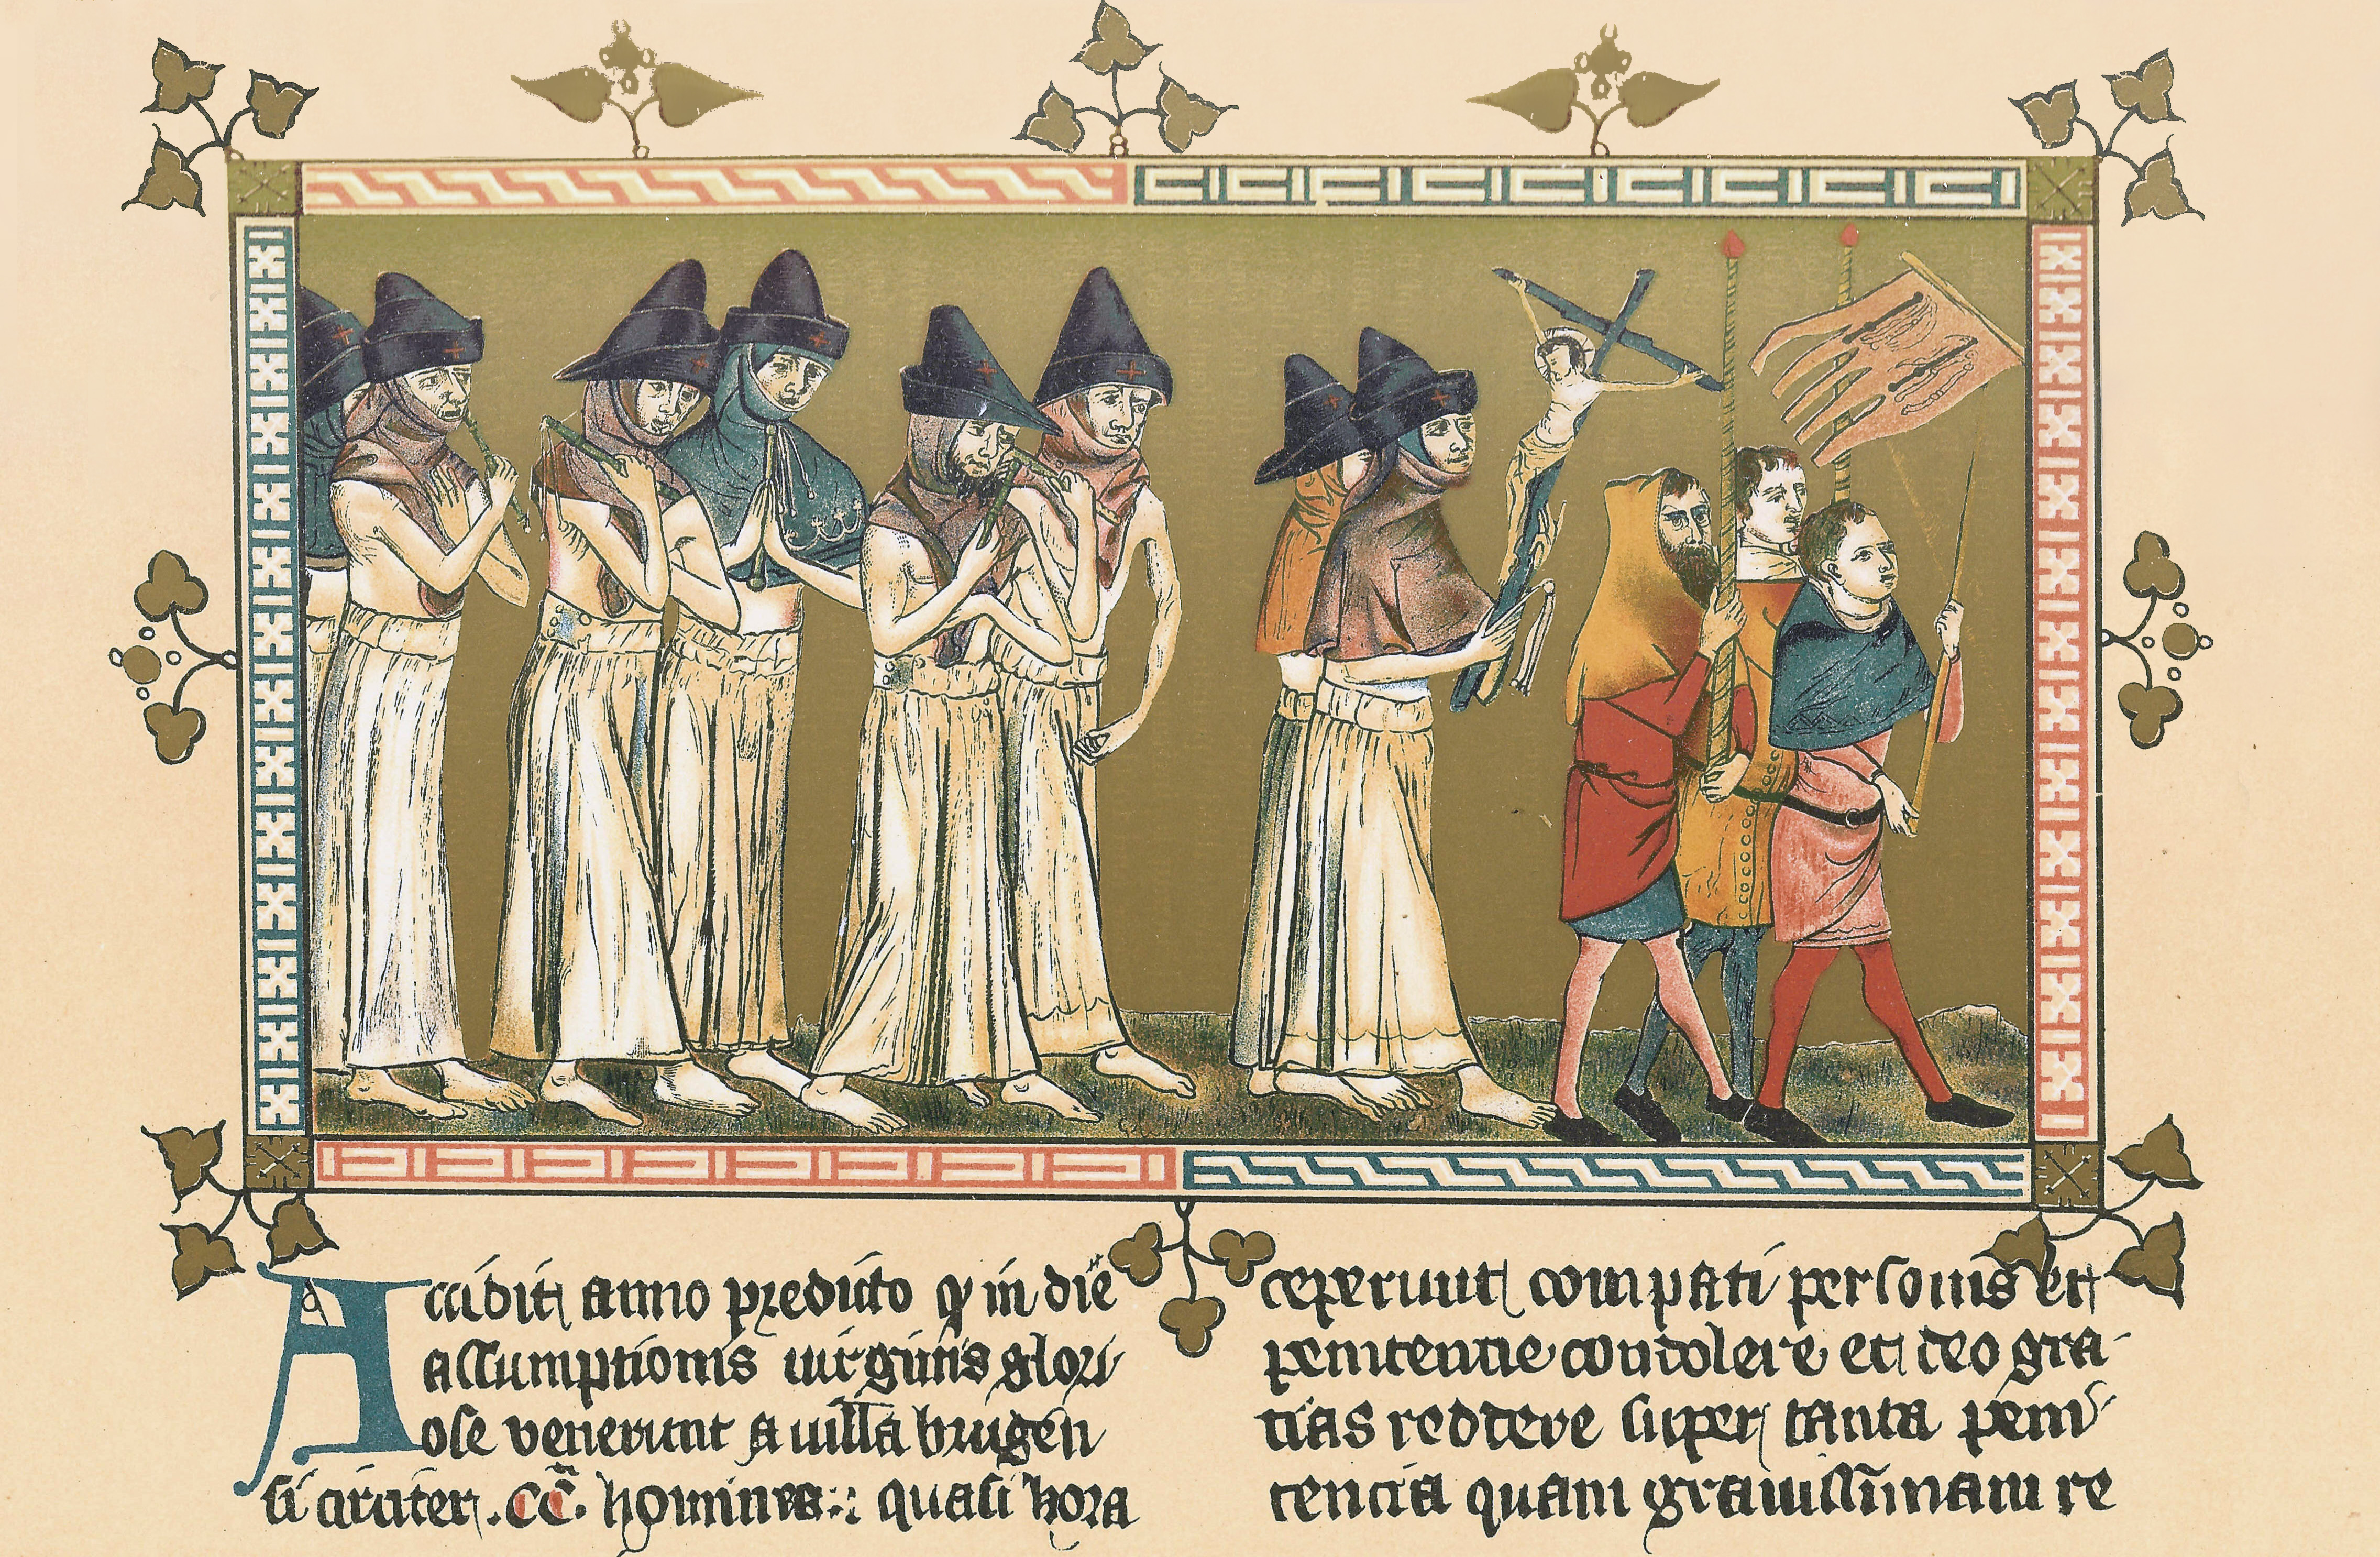 Accidit anno predicto q in die
assumptionis uirginis glori
ose venerunt a uilla brugen
si circiter .CC. homines quasi hora
ceperunt compati personis et
penitentie condolere et deo gra-
tias reddere super tanta peni
tencia quam grauissimam re